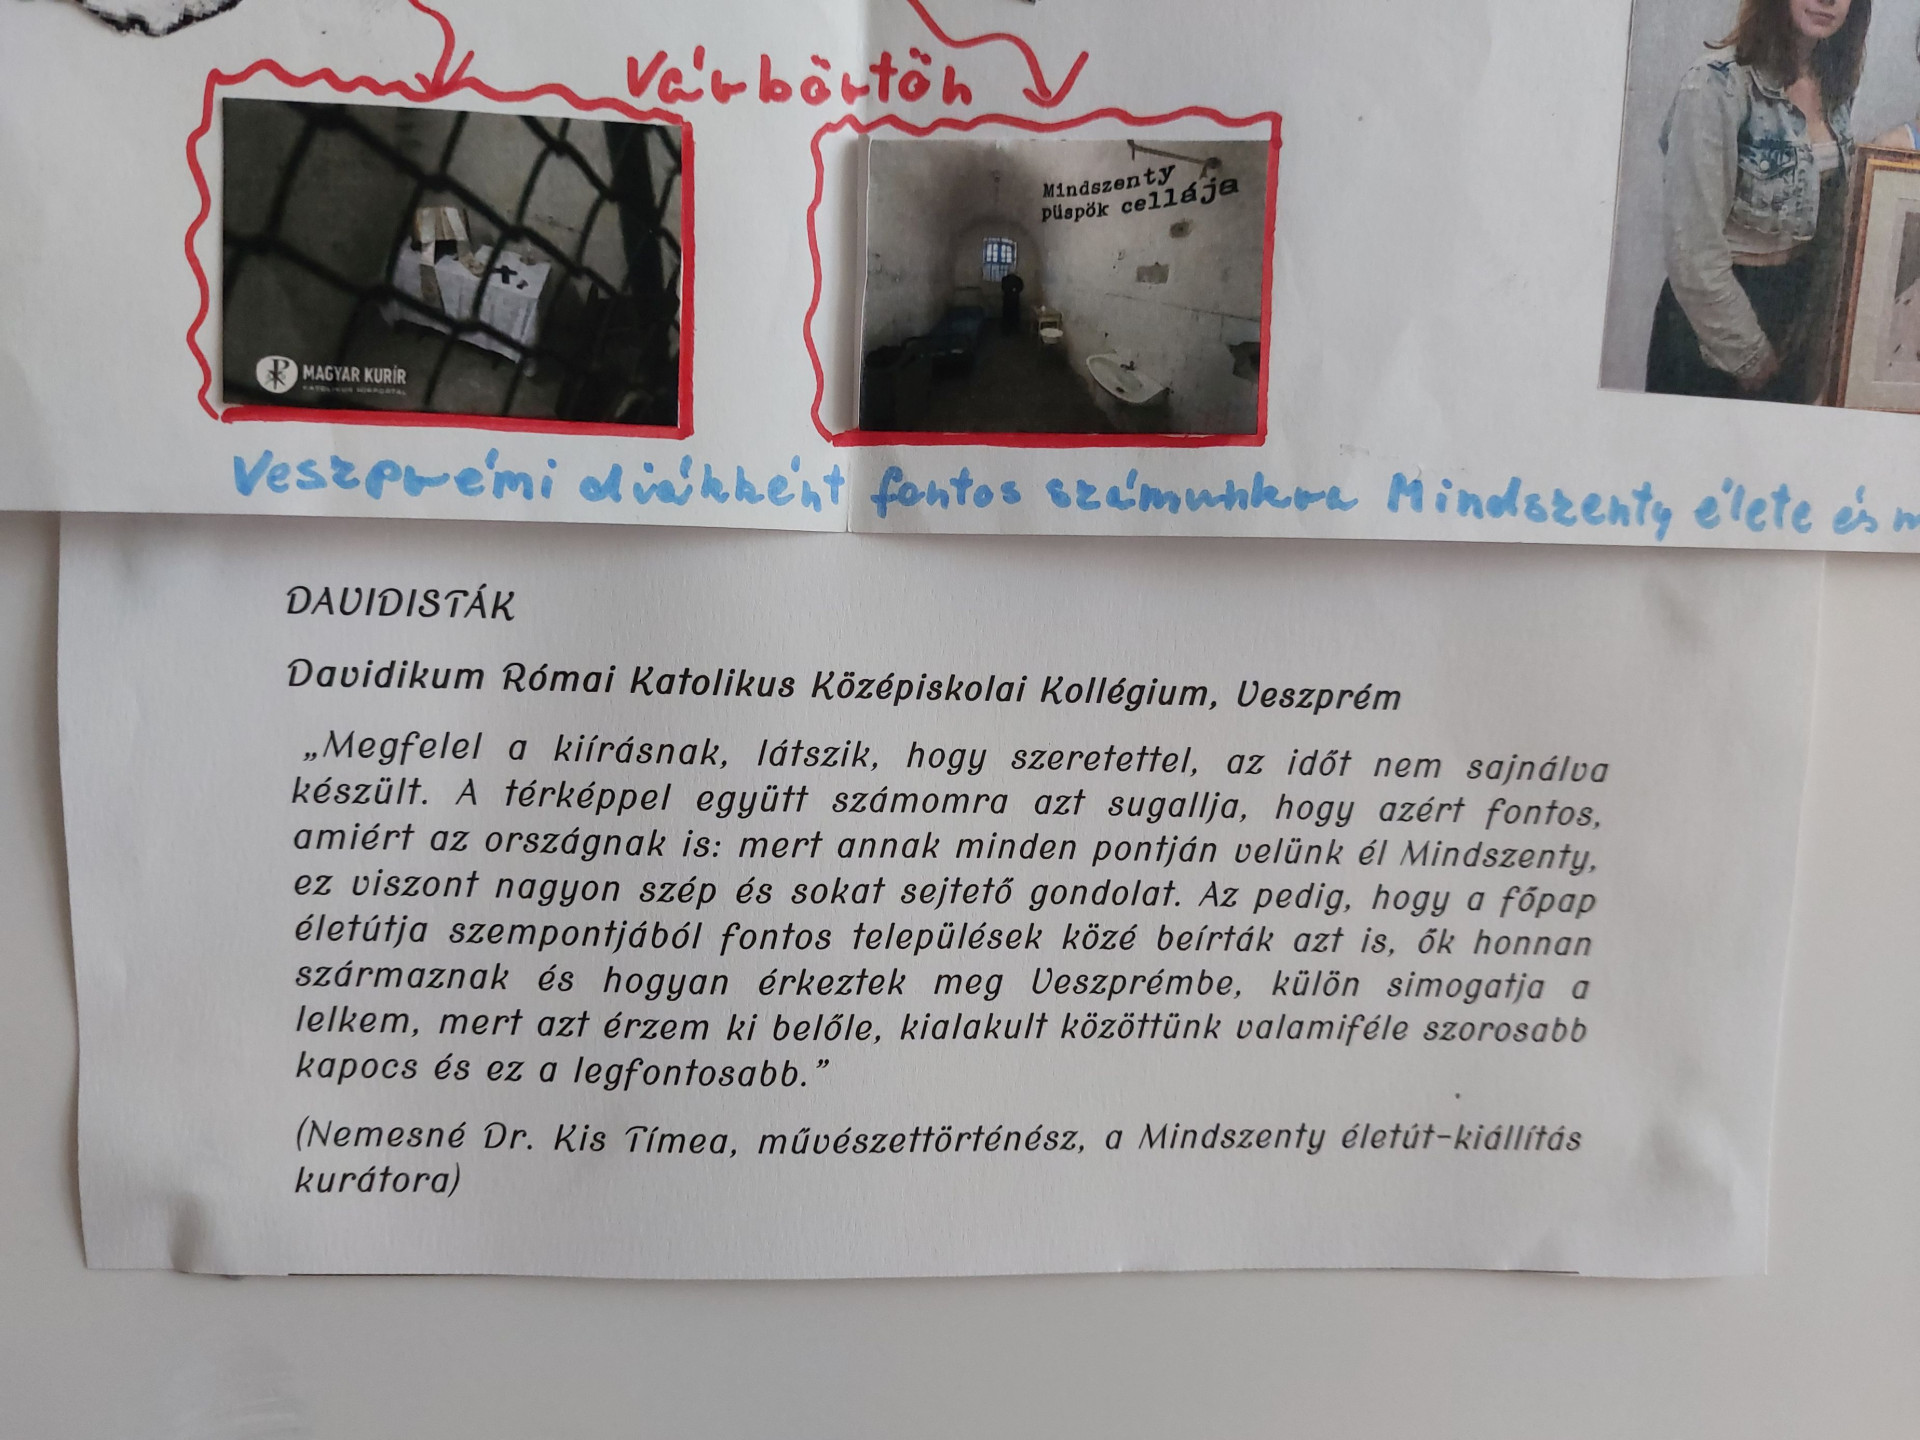 Várbörtön
Mindszenty
püspök cellája
MAGYAR KURÍR
KATOLIKUS HÍRPORTÁL
Veszprémi diákként fontos számunkra Mindszenty élete és
DAVIDISTÁK
Davidikum Római Katolikus Középiskolai Kollégium, Veszprém
„Megfelel a kiírásnak, látszik, hogy szeretettel, az időt nem sajnálva
készült. A térképpel együtt számomra azt sugallja, hogy azért fontos,
amiért az országnak is: mert annak minden pontján velünk él Mindszenty,
ez viszont nagyon szép és sokat sejtető gondolat. Az pedig, hogy a főpap
életútja szempontjából fontos települések közé beírták azt is, ők honnan
származnak és hogyan érkeztek meg Veszprémbe, külön simogatja a
lelkem, mert azt érzem ki belőle, kialakult közöttünk valamiféle szorosabb
kapocs és ez a legfontosabb.”
(Nemesné Dr. Kis Tímea, művészettörténész, a Mindszenty életút-kiállítás
kurátora)